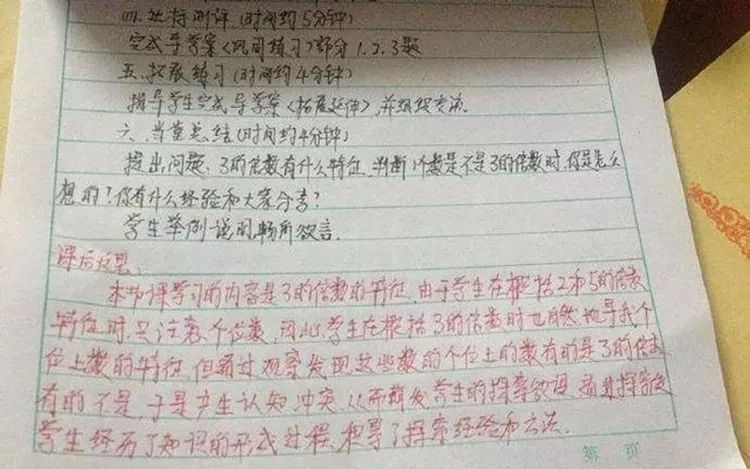 四.达标测评(时间约5分钟)
完成导学案〈巩固练习〉部分1.2.3题
五.拓展练习(时间约4分钟)
指导学生完成导学案〈拓展延伸〉,并组织交流.
六.当堂总结(时间约4分钟)
提出问题:3的倍数有什么特征,判断1个数是不是3的倍数时,你是怎么
想的?你有什么经验和大家分享?
学生举例说明,畅所欲言.
课后反思:
本节课学习的内容是3的倍数的特征,由于学生在概括2和5的倍数
特征时,只注意个位数,因此学生在概括3的倍数时也自然地寻找个
位上数的特征,但通过观察发现这些数的个位上的数有的是3的倍数
有的不是,于是产生认知冲突.从而激发学生的探索欲望,通过探究使
学生经历了知识的形成过程,积累了探索经验和方法.
第 页